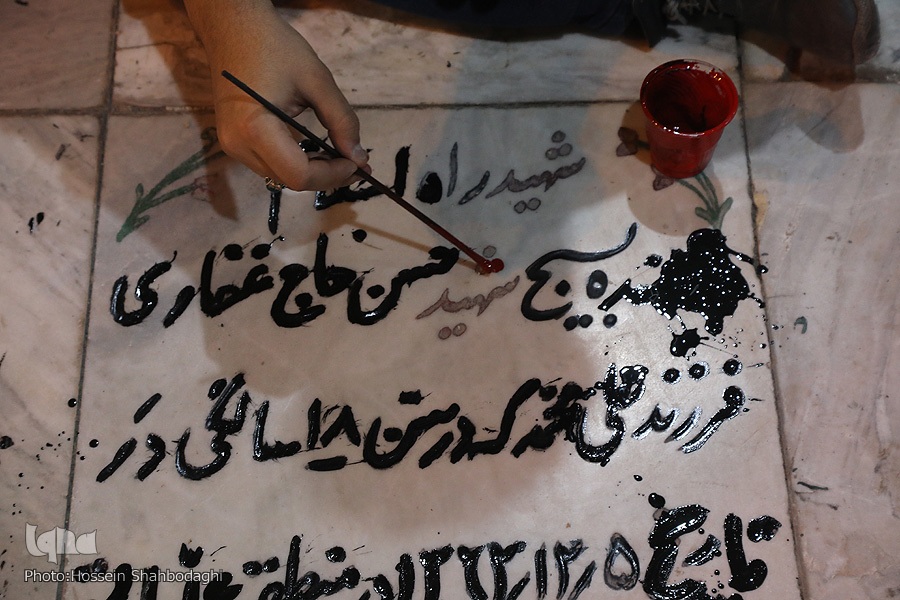 شهید راه اسلام
بسیج شهید حسن حاج غفاری
فرزند علی محمد که در سن ۱۸ سالگی در
تاریخ ۱۳۶۲/۱۲/۵ در منطقه
iqna
Photo:Hossein Shahbodaghi